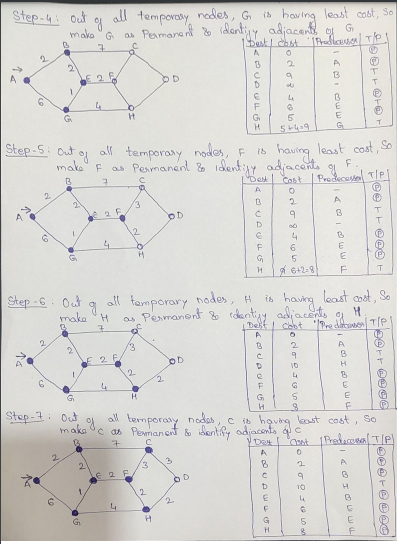 Step-4: Out of all temporary nodes, G is having least cost, So
make G as Permanent & identify adjacents of G
Dest Cost Predecessor T|P
A 0 - P
B 2 A P
C 9 B T
D ∞ - T
E 4 B P
F 6 E T
G 5 E P
H 5+4=9 G T
A B C D E F G H
2 7 2 2 1 6 4
Step-5: Out of all temporary nodes, F is having least cost, So
make F as Permanent & identify adjacents of F.
Dest Cost Predecessor T|P
A 0 - P
B 2 A P
C 9 B T
D ∞ - T
E 4 B P
F 6 E P
G 5 E P
H 9 6+2=8 F T
A B C D E F G H
2 7 2 2 3 1 2 6 4
Step-6: Out of all temporary nodes, H is having least cost, So
make H as Permanent & identify adjacents of H
Dest Cost Predecessor T|P
A 0 - P
B 2 A P
C 9 B T
D 10 H T
E 4 B P
F 6 E P
G 5 E P
H 8 F P
A B C D E F G H
2 7 2 2 3 1 2 2 6 4
Step-7: Out of all temporary nodes, C is having least cost, So
make C as Permanent & identify adjacents of C
Dest Cost Predecessor T|P
A 0 - P
B 2 A P
C 9 B P
D 10 H T
E 4 B P
F 6 E P
G 5 E P
H 8 F P
A B C D E F G H
2 7 2 2 3 3 1 2 2 6 4